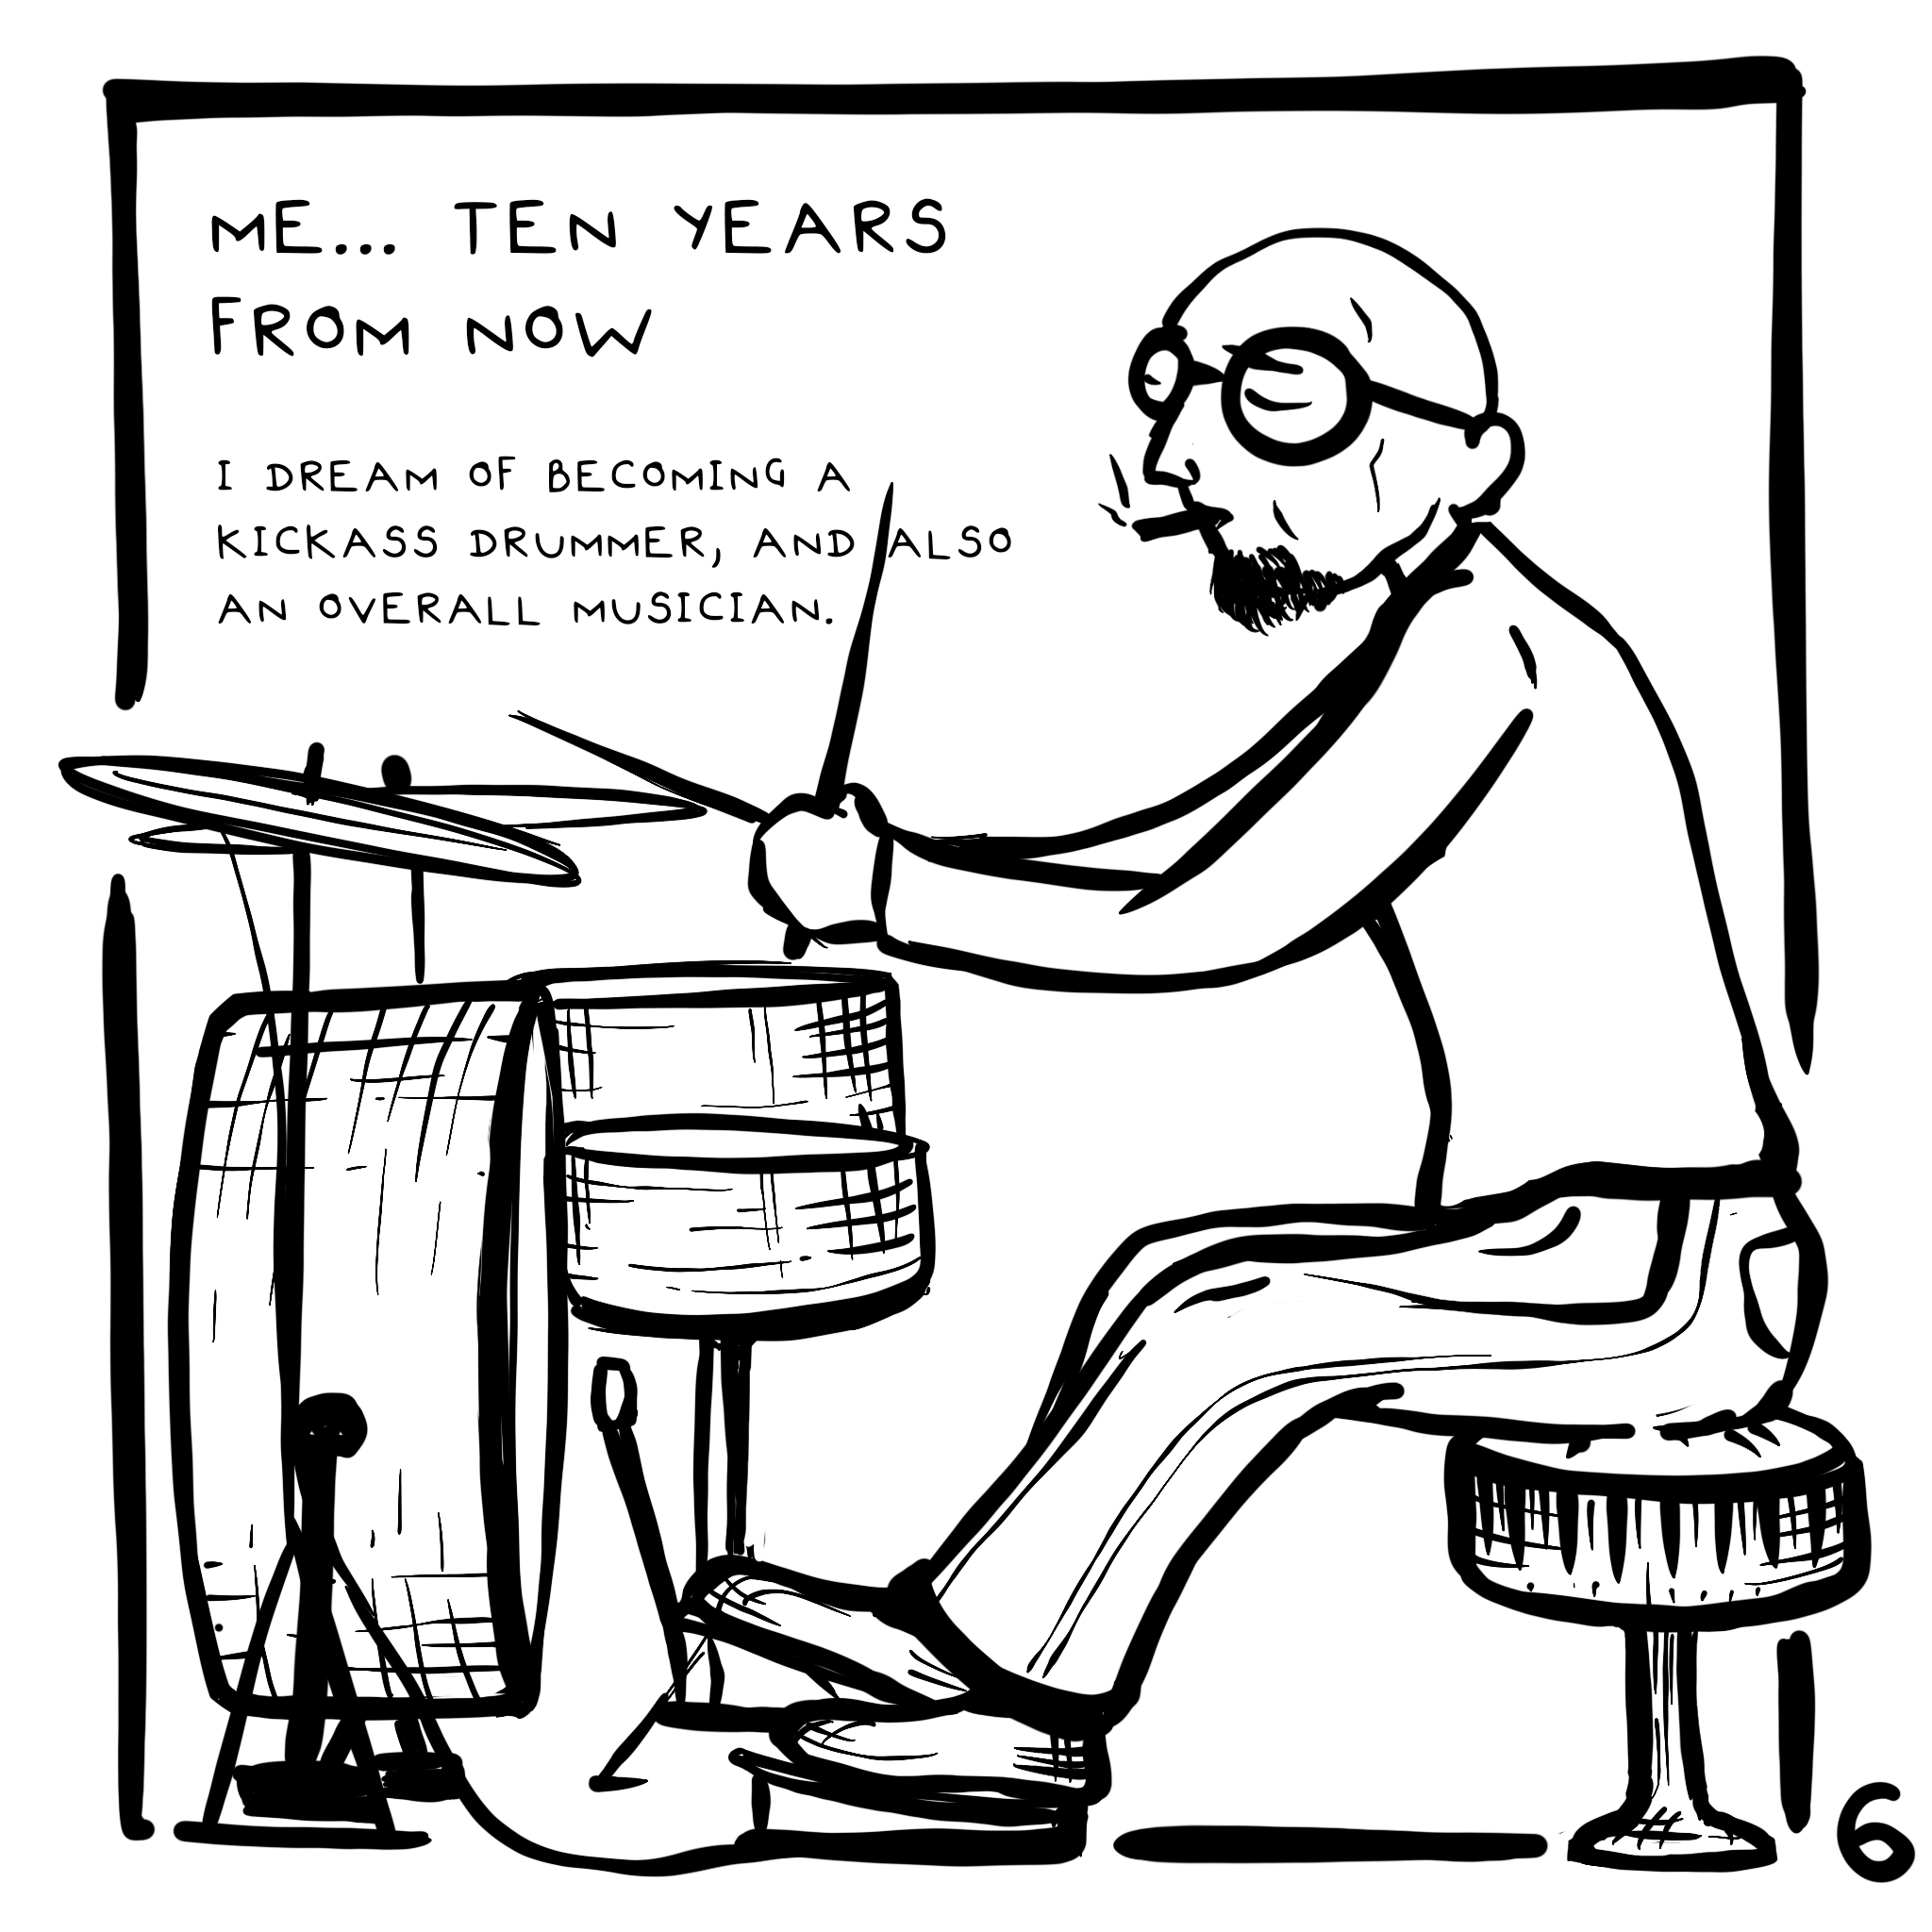 ME... TEN YEARS
FROM NOW
I DREAM OF BECOMING A
KICKASS DRUMMER, AND ALSO
AN OVERALL MUSICIAN.
6